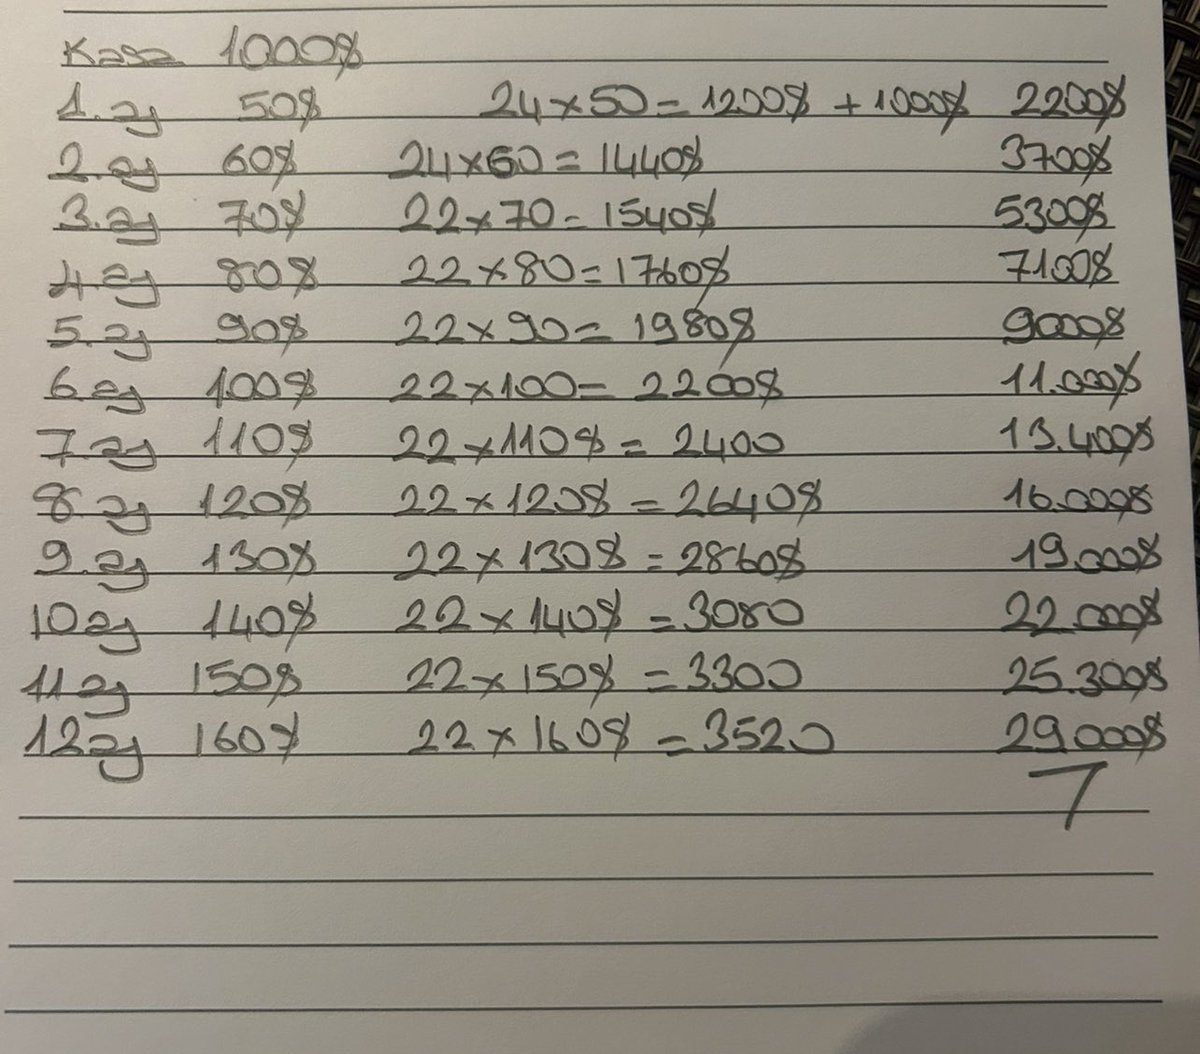 Kasa 1000$
1. ay 50$ 24x50=1200$ +1000$ 2200$
2. ay 60$ 24x60=1440$ 3700$
3. ay 70$ 22x70=1540$ 5300$
4. ay 80$ 22x80=1760$ 7100$
5. ay 90$ 22x90=1980$ 9000$
6. ay 100$ 22x100=2200$ 11.000$
7. ay 110$ 22x110$=2400 13.400$
8. ay 120$ 22x120$=2640$ 16.000$
9. ay 130$ 22x130$=2860$ 19.000$
10 ay 140$ 22x140$=3080 22.000$
11 ay 150$ 22x150$=3300 25.300$
12 ay 160$ 22x160$=3520 29.000$
7